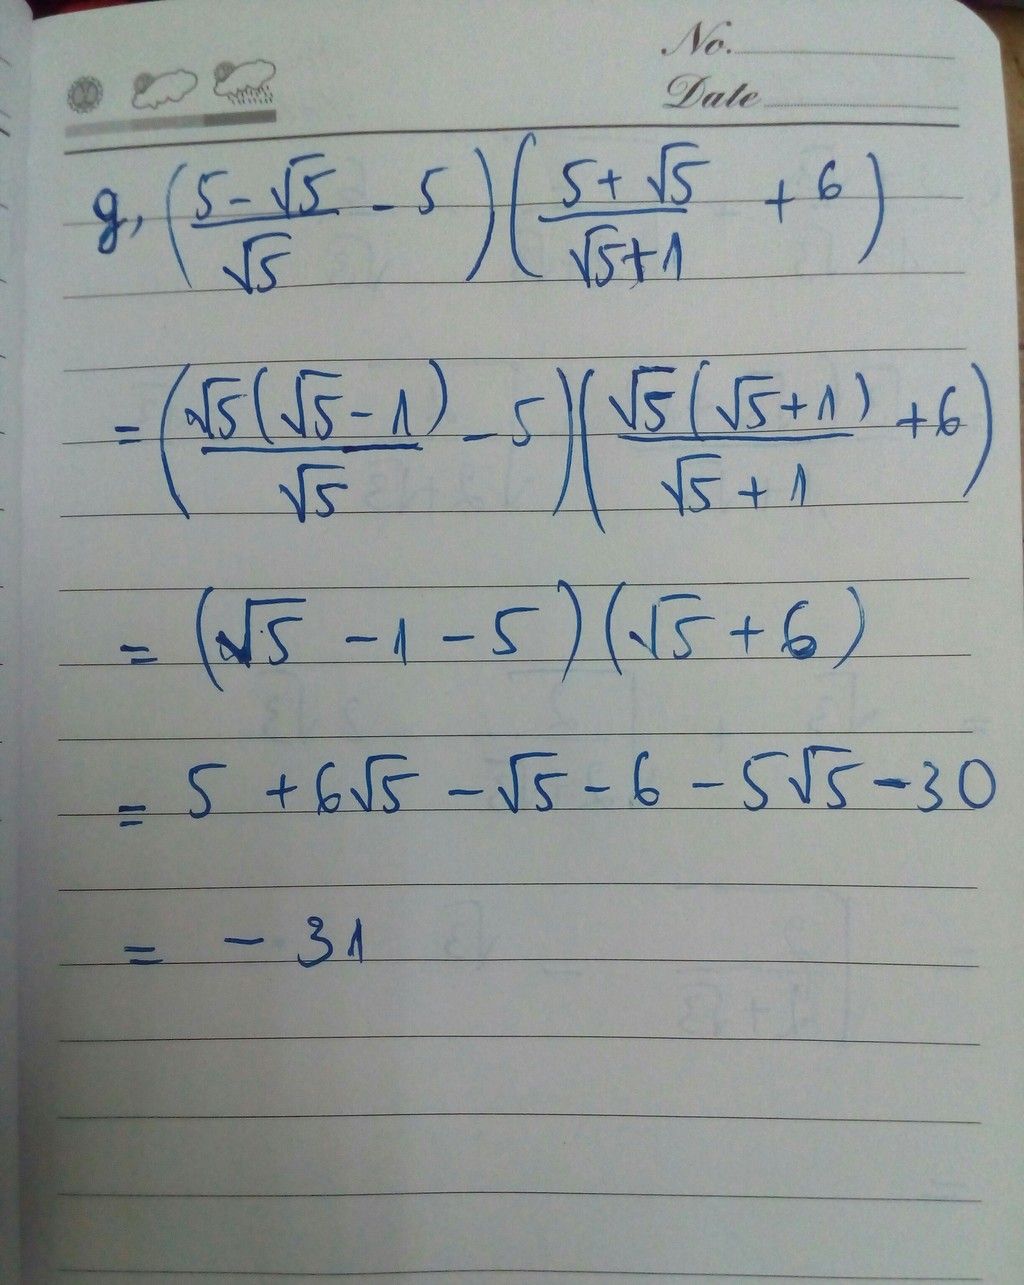 No.
Date
g, ((5 - √5)/√5 - 5)((5 + √5)/(√5 + 1) + 6)
= (√5(√5 - 1)/√5 - 5)(√5(√5 + 1)/(√5 + 1) + 6)
= (√5 - 1 - 5)(√5 + 6)
= 5 + 6√5 - √5 - 6 - 5√5 - 30
= - 31